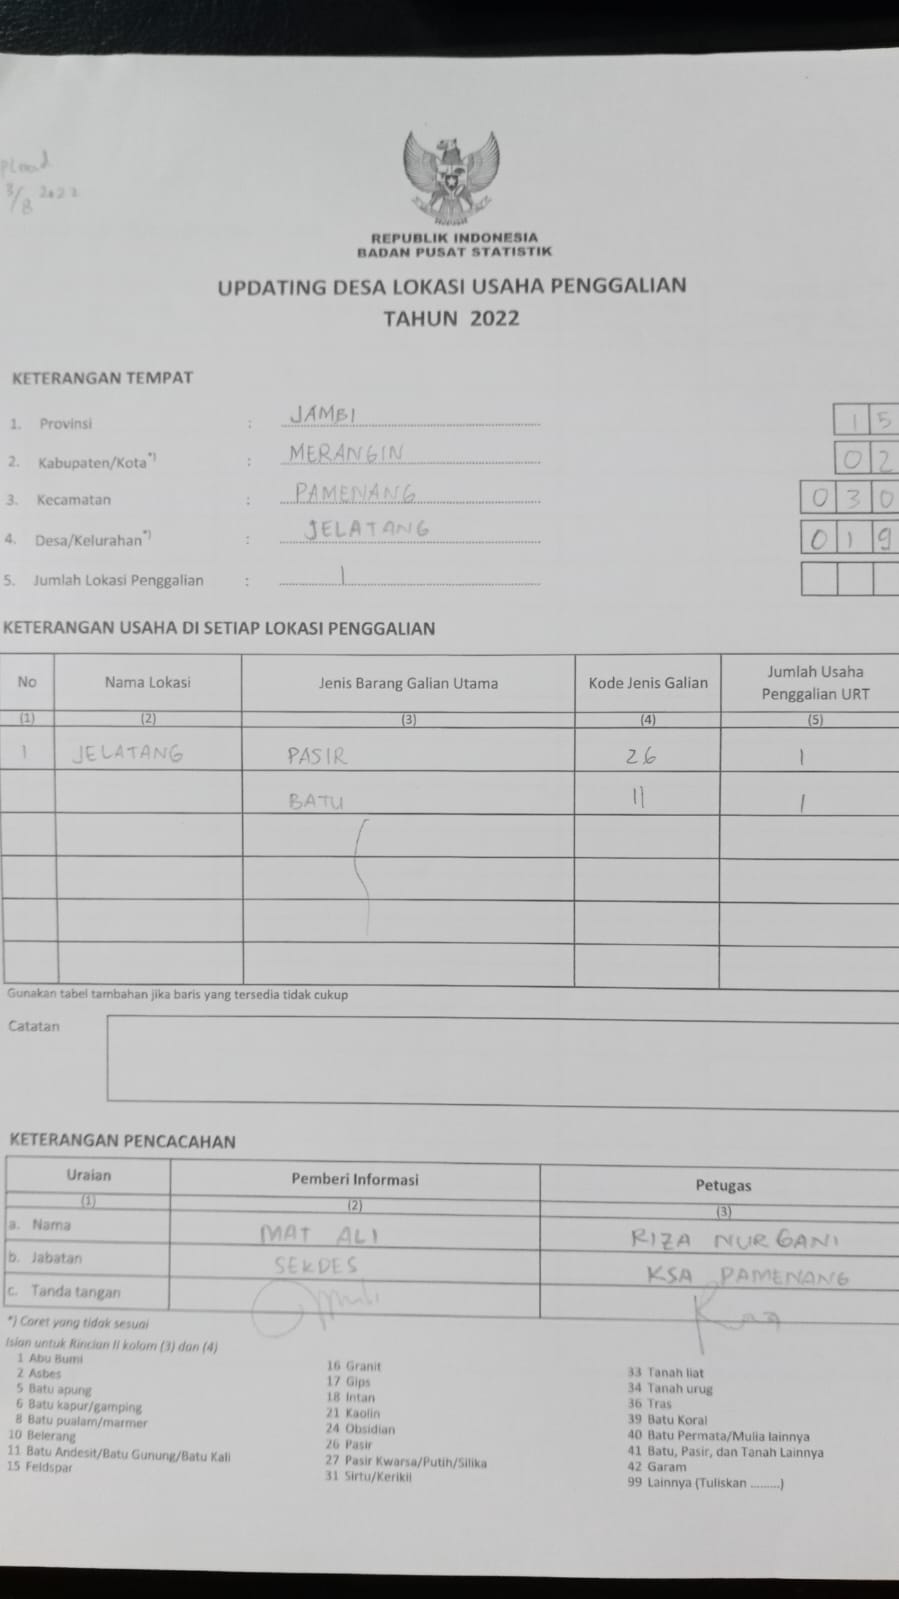 Pload
3/8 2022
REPUBLIK INDONESIA
BADAN PUSAT STATISTIK
UPDATING DESA LOKASI USAHA PENGGALIAN
TAHUN 2022
KETERANGAN TEMPAT
1. Provinsi : JAMBI 15
2. Kabupaten/Kota*) : MERANGIN 02
3. Kecamatan : PAMENANG 030
4. Desa/Kelurahan*) : JELATANG 019
5. Jumlah Lokasi Penggalian : 1
KETERANGAN USAHA DI SETIAP LOKASI PENGGALIAN
No Nama Lokasi Jenis Barang Galian Utama Kode Jenis Galian Jumlah Usaha Penggalian URT
(1) (2) (3) (4) (5)
1 JELATANG PASIR 26 1
BATU 11 1
Gunakan tabel tambahan jika baris yang tersedia tidak cukup
Catatan
KETERANGAN PENCACAHAN
Uraian Pemberi Informasi Petugas
(1) (2) (3)
a. Nama MAT ALI RIZA NUR GANI
b. Jabatan SEKDES KSA PAMENANG
c. Tanda tangan
*) Coret yang tidak sesuai
Isian untuk Rincian II kolom (3) dan (4)
1 Abu Bumi
2 Asbes
5 Batu apung
6 Batu kapur/gamping
8 Batu pualam/marmer
10 Belerang
11 Batu Andesit/Batu Gunung/Batu Kali
15 Feldspar
16 Granit
17 Gips
18 Intan
21 Kaolin
24 Obsidian
26 Pasir
27 Pasir Kwarsa/Putih/Silika
31 Sirtu/Kerikil
33 Tanah liat
34 Tanah urug
36 Tras
39 Batu Koral
40 Batu Permata/Mulia lainnya
41 Batu, Pasir, dan Tanah Lainnya
42 Garam
99 Lainnya (Tuliskan .........)